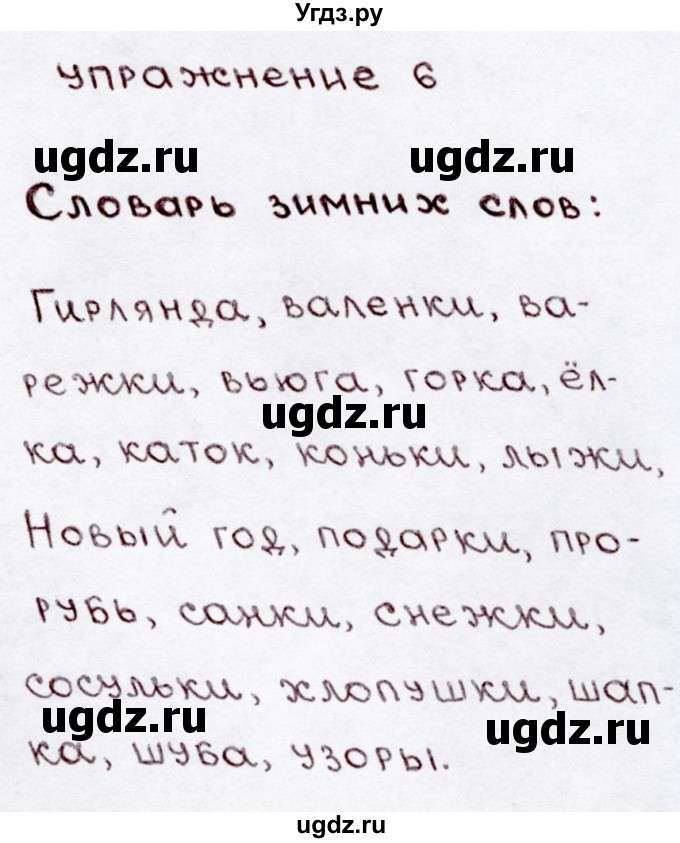 Угдз.ру
упражнение 6
ugdz.ru ugdz.ru
Словарь зимних слов:
Гирлянда, валенки, ва-
режки, вьюга, горка, ёл-
ugdz.ru
ка, каток, коньки, лыжи,
Новый год, подарки, про-
рубь, санки, снежки,
сосульки, хлопушки, шап-
ugdz.ru ugdz.ru
ка, шуба, узоры.
ugdz.ru